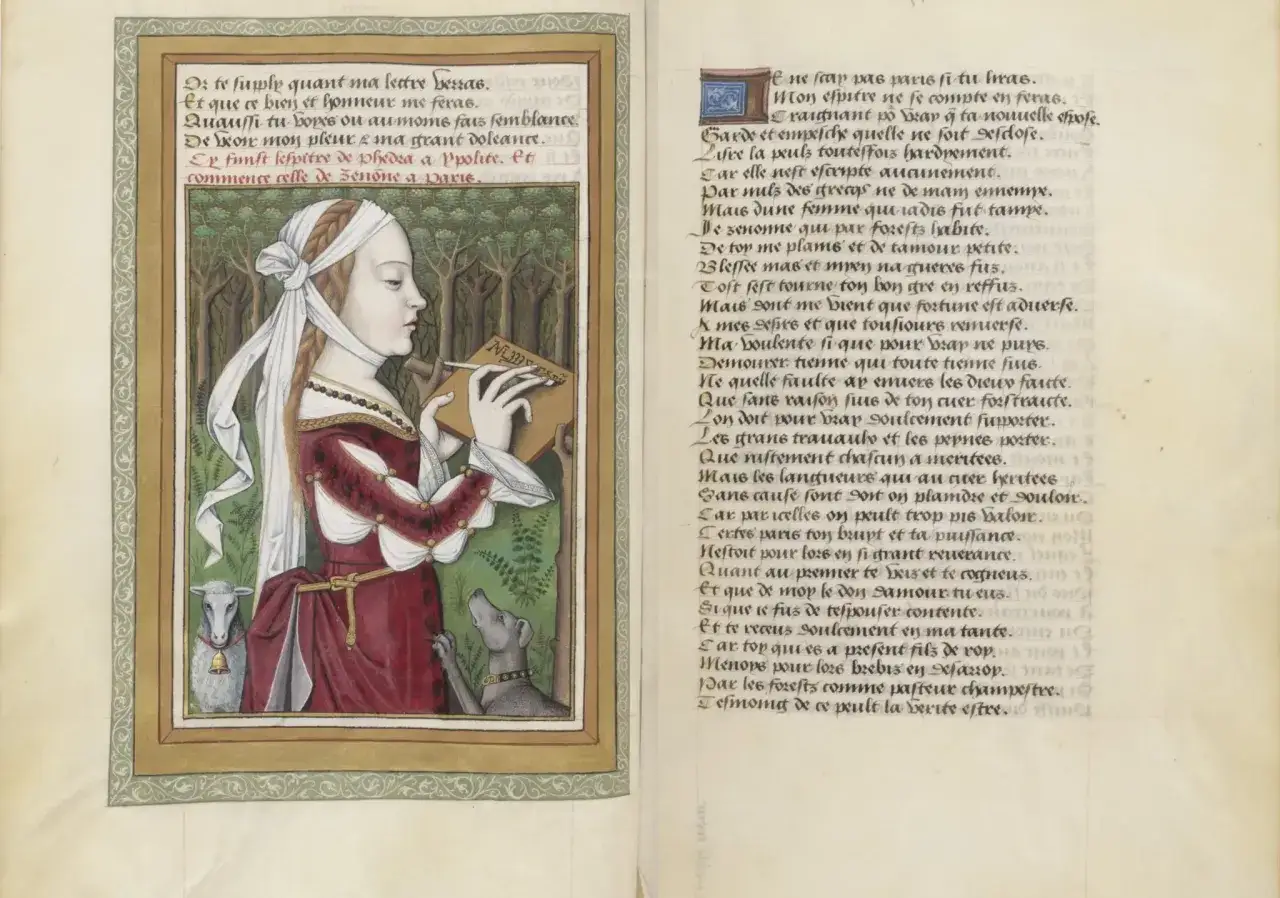 Or te supply quant ma lectre verras.
Et que ce bien et honneur me feras.
Quaussi tu voyes ou au moins fais semblance.
De veoir mon pleur & ma grant doleance.
Cy finist lespitre de phedra a ypolite. Et
commence celle de zenone a paris.
E ne scay pas paris si tu liras.
Mon espitre ne se compte en feras.
Craignant po vray q̃ ta nouvelle espose.
Garde et empesche quelle ne soit desclose.
Lisre la peulz toutesfois hardyement.
Car elle nest escripte aucunement.
Par nulz des grecqs ne de main ennemye.
Mais dune femme qui iadis fut tamye.
Je zenonne qui par forestz habite.
De toy me plains et de tamour petite.
Blessee mas et myen na gueres fuz.
Tost sest tourne ton bon gre en reffuz.
Mais dont me vient que fortune est adverse.
A mes desirs et que tousiours renverse.
Ma voulente si que pour vray ne puys.
Demourer tienne qui toute tienne suis.
Ne quelle faulte ay envers les dieux faicte.
Que sans raison suis de ton cuer forstraicte.
Lon doit pour vray doulcement supporter.
Les grans travaulx et les peynes porter.
Que iustement chascun a meritees.
Mais les langueurs qui au cuer heritees
Sans cause sont doit on plaindre et douloir.
Car par icelles on peult trop pis valoir.
Certes paris ton bruyt et ta puissance.
Nestoit pour lors en si grant reverance.
Quant au premier te veiz et te cogneuz.
Et que de moy le don damour tu euz.
Si que ie fuz de tespouser contente.
Et te receuz doulcement en ma tante.
Car toy qui es a present filz de roy.
Menoys pour lors brebiz en desarroy.
Par les forestz comme pasteur champestre.
Tesmoing de ce peult la verite estre.